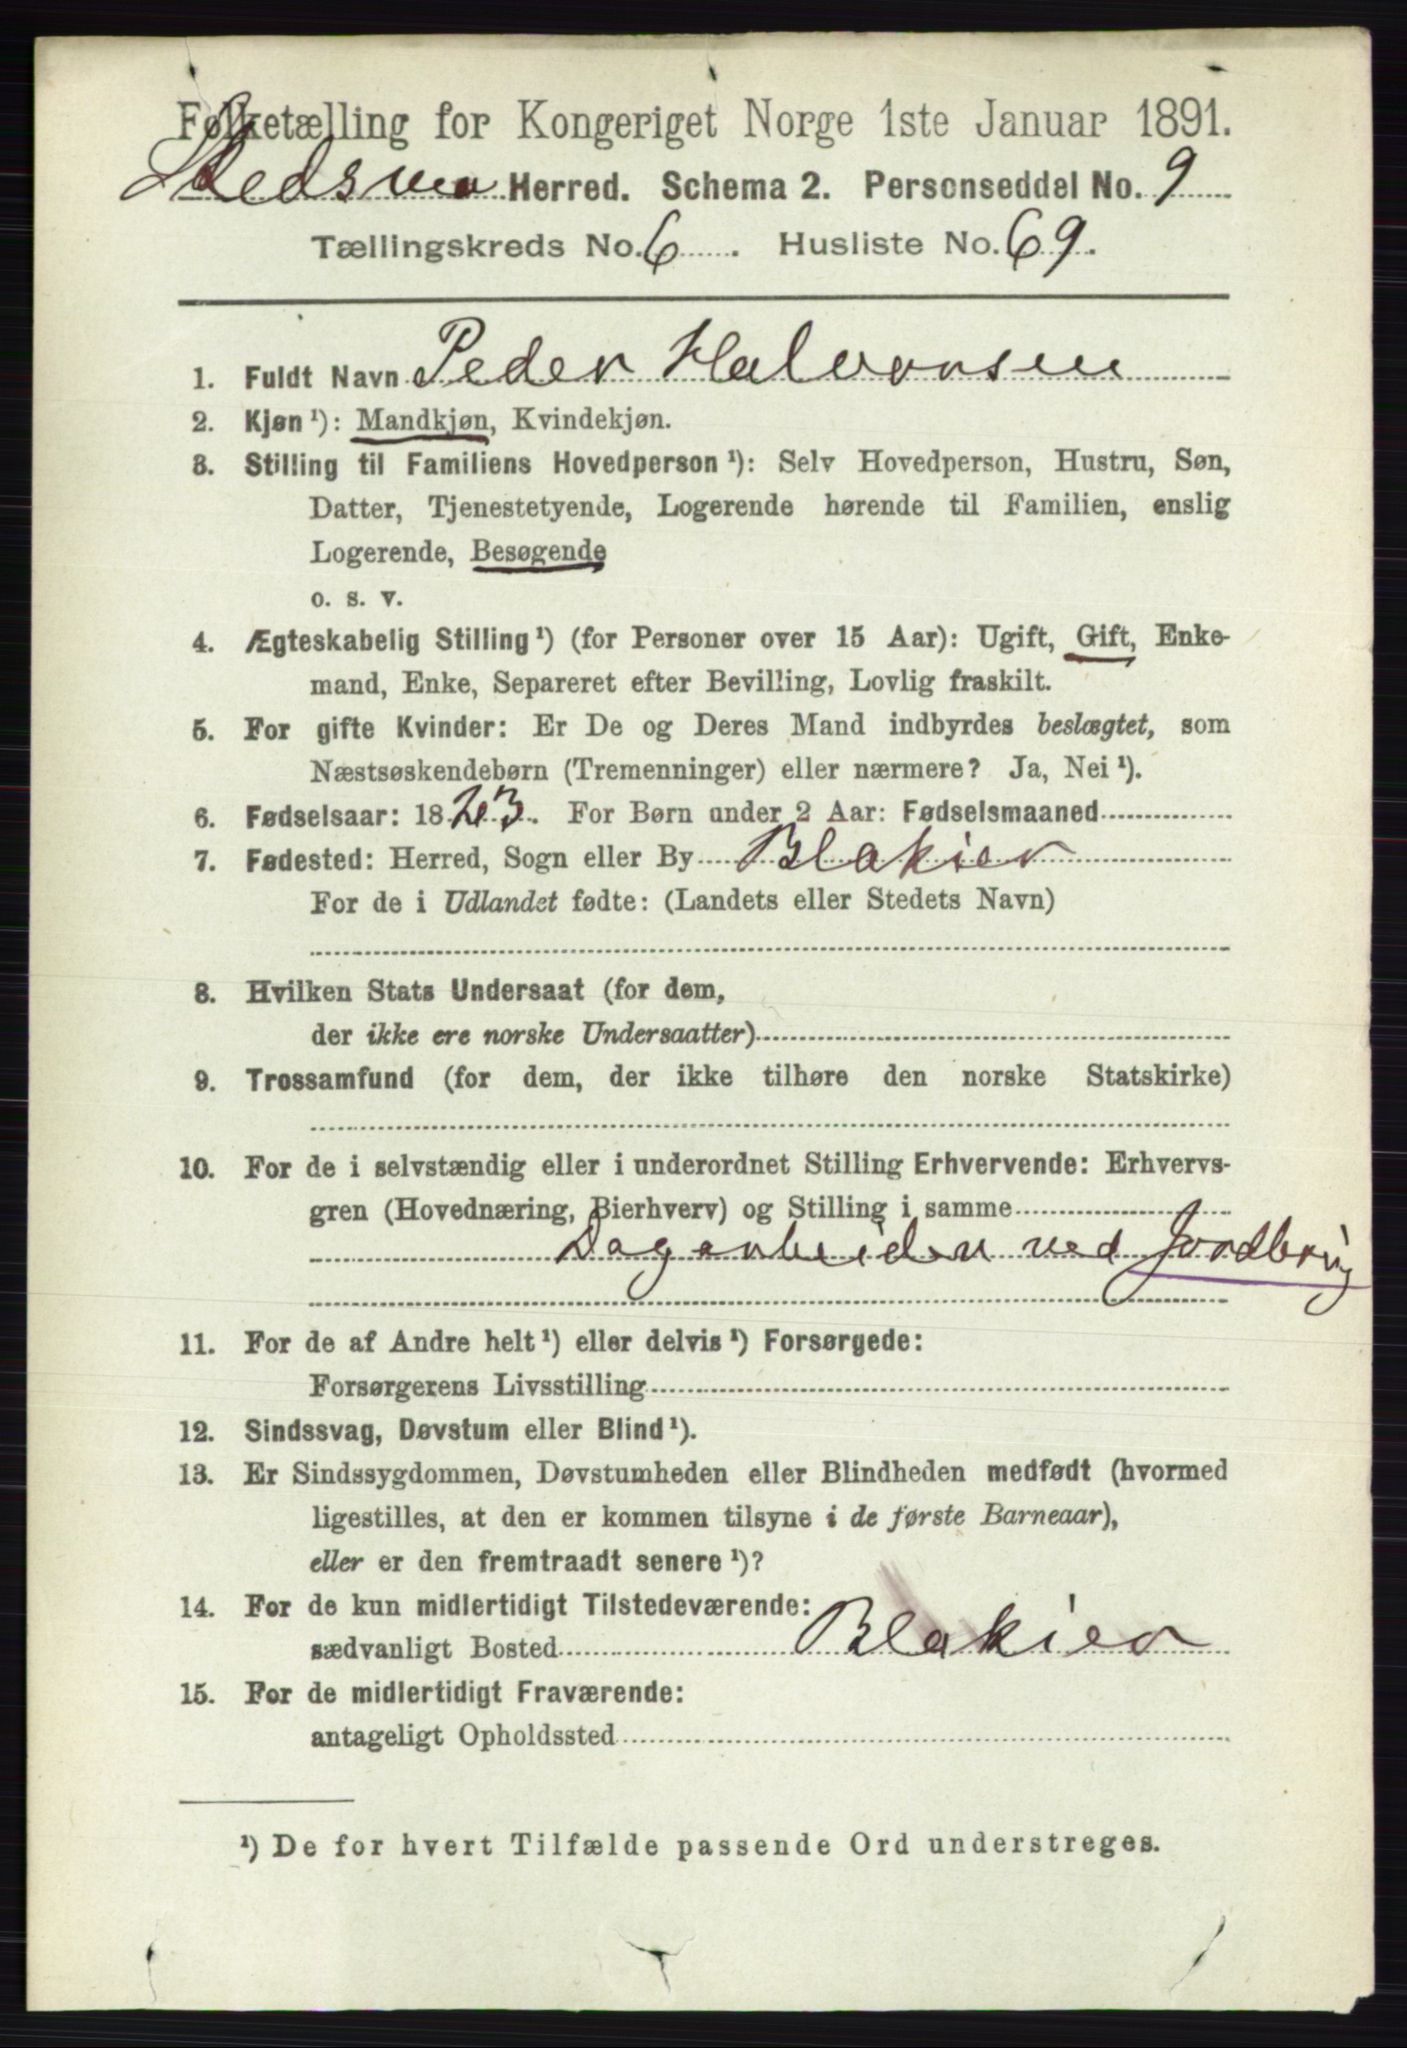 Folketælling for Kongeriget Norge 1ste Januar 1891.
Herred. Schema 2. Personseddel No. 9
Tællingskreds No. 6. Husliste No. 69.
1. Fuldt Navn Peder Halvorsen
2. Kjøn ¹): Mandkjøn, Kvindekjøn.
3. Stilling til Familiens Hovedperson ¹): Selv Hovedperson, Hustru, Søn,
Datter, Tjenestetyende, Logerende hørende til Familien, enslig
Logerende, Besøgende
o. s. v.
4. Ægteskabelig Stilling ¹) (for Personer over 15 Aar): Ugift, Gift, Enke-
mand, Enke, Separeret efter Bevilling, Lovlig fraskilt.
5. For gifte Kvinder: Er De og Deres Mand indbyrdes beslægtet, som
Næstsøskendebørn (Tremenninger) eller nærmere? Ja, Nei ¹).
6. Fødselsaar: 1823. For Børn under 2 Aar: Fødselsmaaned
7. Fødested: Herred, Sogn eller By Blakier
For de i Udlandet fødte: (Landets eller Stedets Navn)
8. Hvilken Stats Undersaat (for dem,
der ikke ere norske Undersaatter)
9. Trossamfund (for dem, der ikke tilhøre den norske Statskirke)
10. For de i selvstændig eller i underordnet Stilling Erhvervende: Erhvervs-
gren (Hovednæring, Bierhverv) og Stilling i samme
Dagarbeider ved Jordbrug
11. For de af Andre helt ¹) eller delvis ¹) Forsørgede:
Forsørgerens Livsstilling
12. Sindssvag, Døvstum eller Blind ¹).
13. Er Sindssygdommen, Døvstumheden eller Blindheden medfødt (hvormed
ligestilles, at den er kommen tilsyne i de første Barneaar),
eller er den fremtraadt senere ¹)?
14. For de kun midlertidigt Tilstedeværende:
sædvanligt Bosted Blakier
15. For de midlertidigt Fraværende:
antageligt Opholdssted
¹) De for hvert Tilfælde passende Ord understreges.